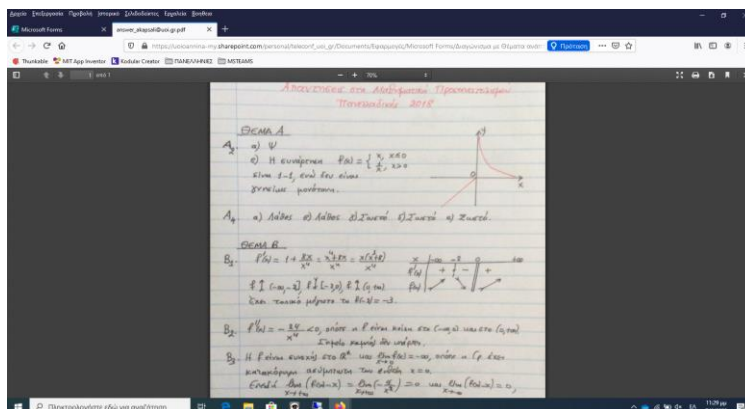 Αρχείο Επεξεργασία Προβολή Ιστορικό Σελιδοδείκτες Εργαλεία Βοήθεια
Microsoft Forms
answer_akapsah@uoi.gr.pdf
https://uoioannina-my.sharepoint.com/personal/teleconf_uoi_gr/Documents/Εφαρμογές/Microsoft Forms/
Πρόταση
Thunkable MIT App Inventor Kodular Creator ΠΑΝΕΛΛΗΝΙΕΣ MSTEAMS
1 από 1
70%
Απαντήσεις στα Μαθηματικά Προσανατολισμού
Πανελλαδικές 2018
ΘΕΜΑ Α
A2. α) Ψ
ε) Η συνάρτηση f(x) = { x, x≤0
1/x, x>0
είναι 1-1, ενώ δεν είναι
γνησίως μονότονη.
y
0
x
A4. α) Λάθος β) Λάθος γ) Σωστό δ) Σωστό ε) Σωστό.
ΘΕΜΑ Β
B1. f'(x) = 1 + 8x/x⁴ = x⁴+8x/x⁴ = x(x³+8)/x⁴
x -∞ -2 0 +∞
f'(x) + - +
f(x)
f ↑ (-∞,-2], f ↓ [-2,0), f ↑ (0,+∞)
Έχει τοπικό μέγιστο το f(-2) = -3.
B2. f''(x) = - 24/x⁴ <0, οπότε η f είναι κοίλη στο (-∞,0) και στο (0,+∞)
Σημείο καμπής δεν υπάρχει.
B3. Η f είναι συνεχής στο ℝ* και lim f(x) = -∞, οπότε η Cf έχει
x→0
κατακόρυφη ασύμπτωτη την ευθεία x=0.
Επειδή lim (f(x)-x) = lim (-4/x²) = 0 και lim (f(x)-x) = 0,
x→+∞ x→+∞ x→-∞
Πληκτρολογήστε εδώ για αναζήτηση
11:29 μμ